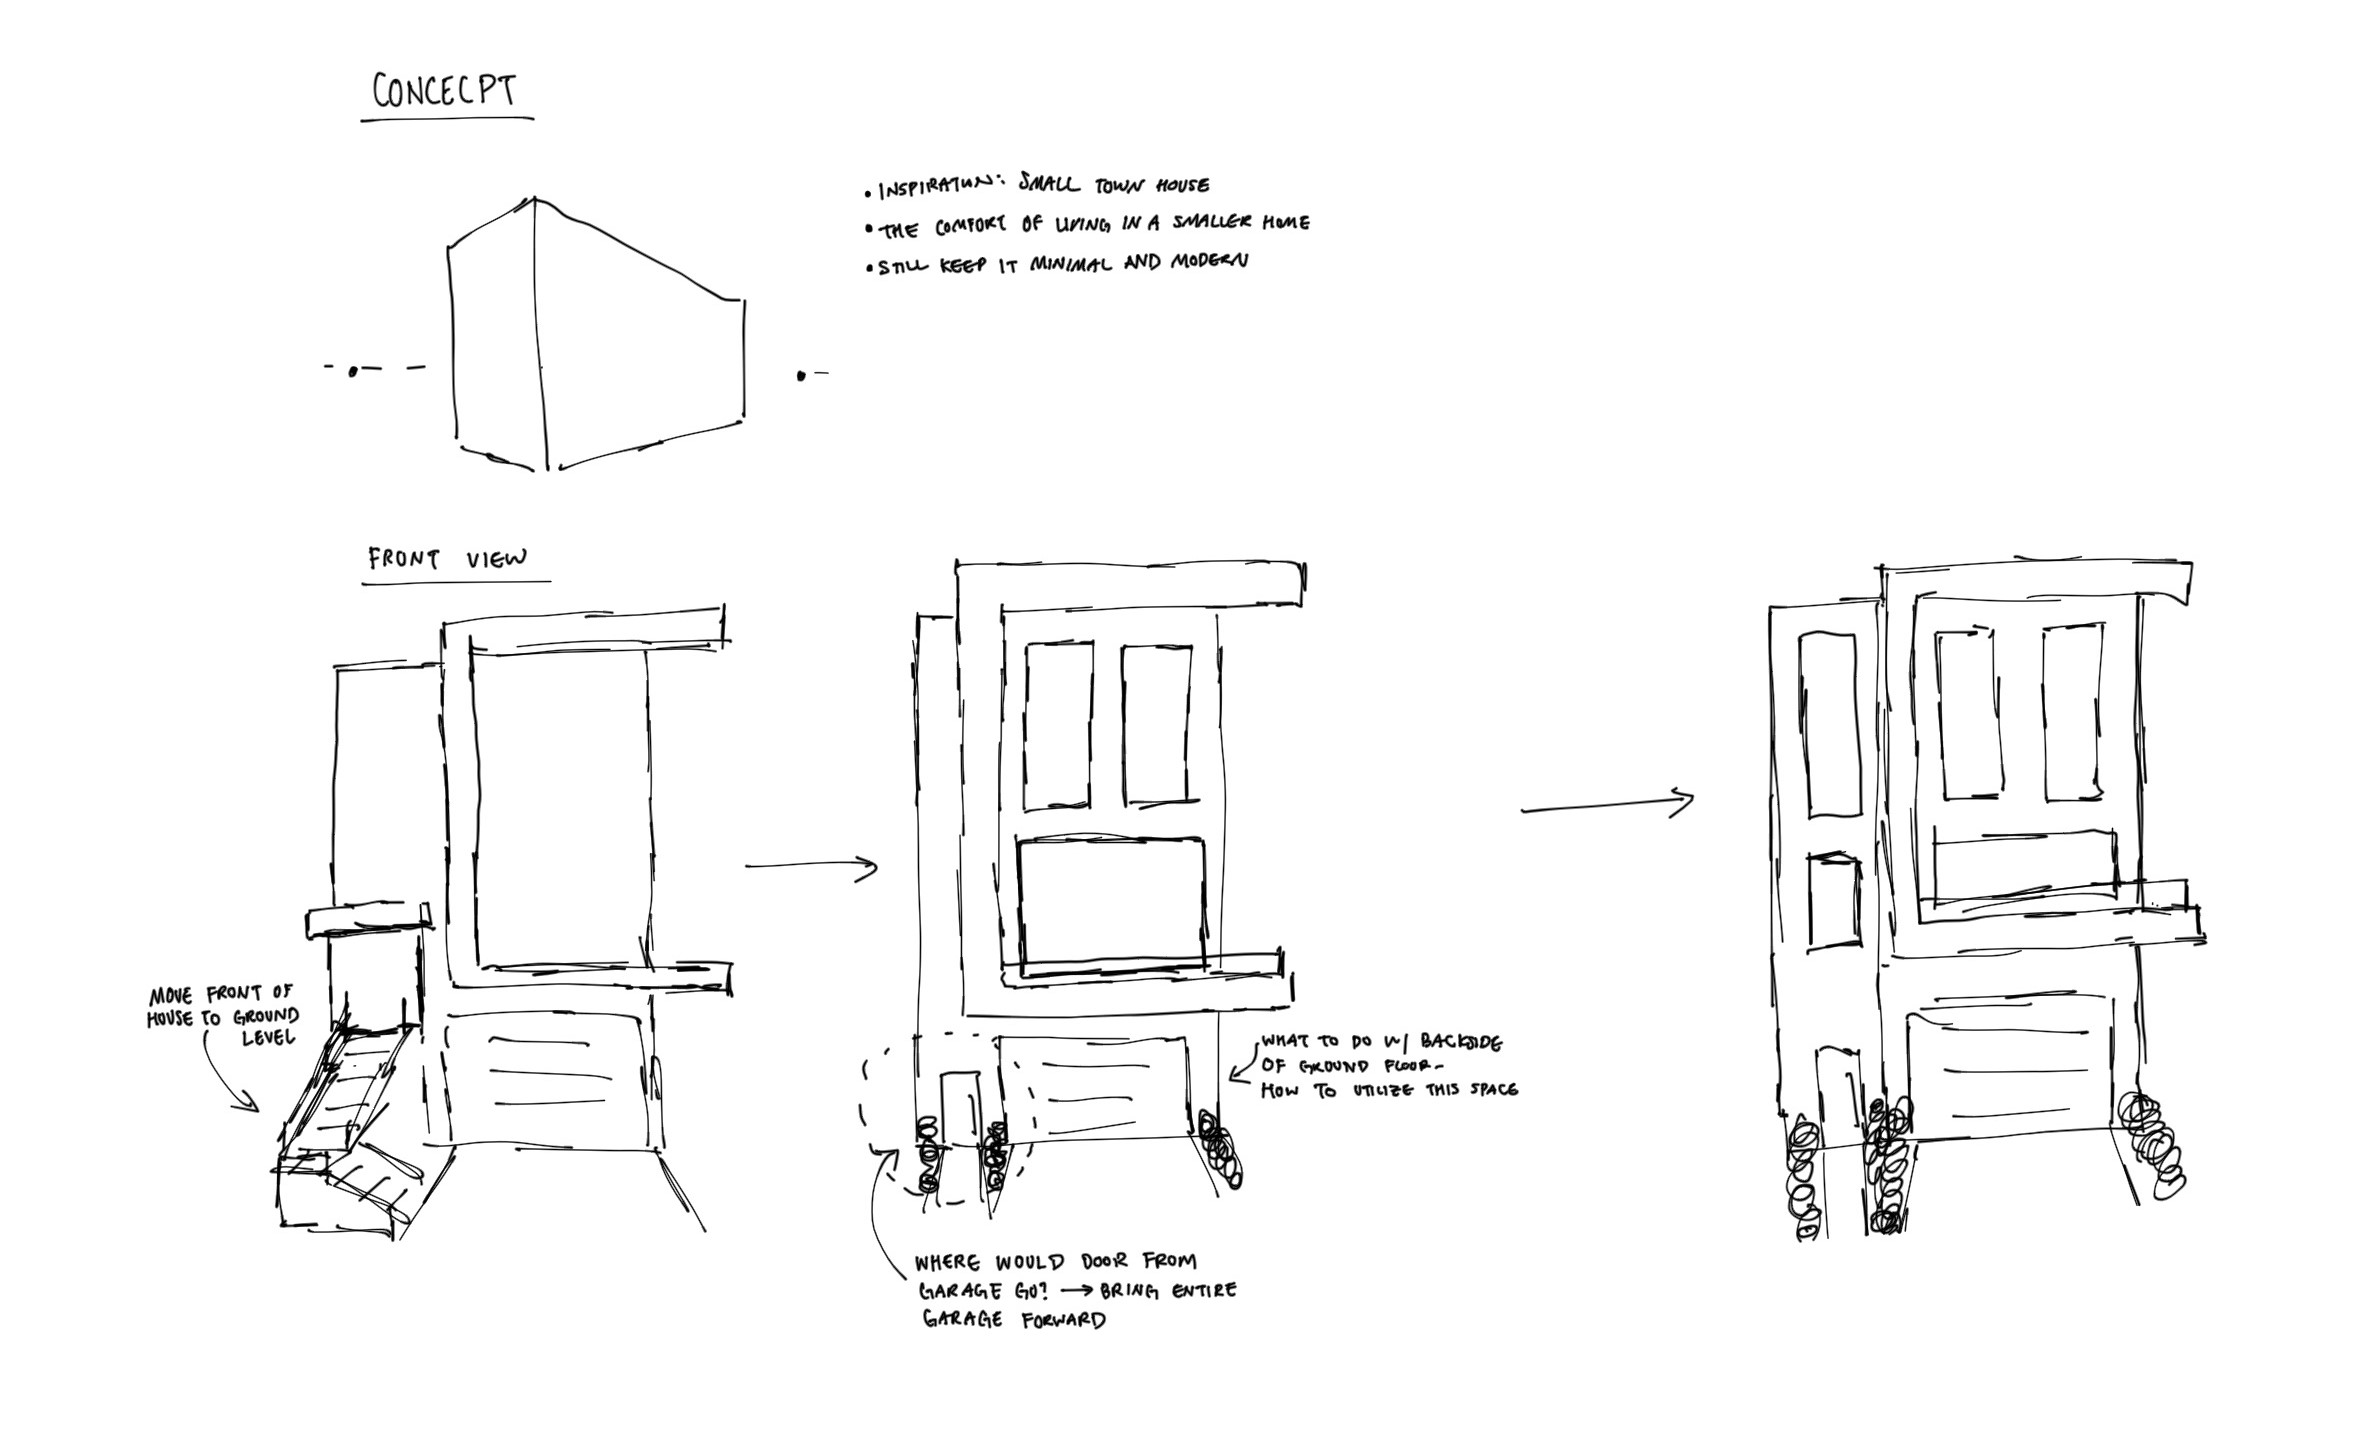 CONCECPT
• INSPIRATION: SMALL TOWN HOUSE
• THE COMFORT OF LIVING IN A SMALLER HOME
• STILL KEEP IT MINIMAL AND MODERN
FRONT VIEW
MOVE FRONT OF
HOUSE TO GROUND
LEVEL
WHAT TO DO W/ BACKSIDE
OF GROUND FLOOR -
HOW TO UTILIZE THIS SPACE
WHERE WOULD DOOR FROM
GARAGE GO? → BRING ENTIRE
GARAGE FORWARD